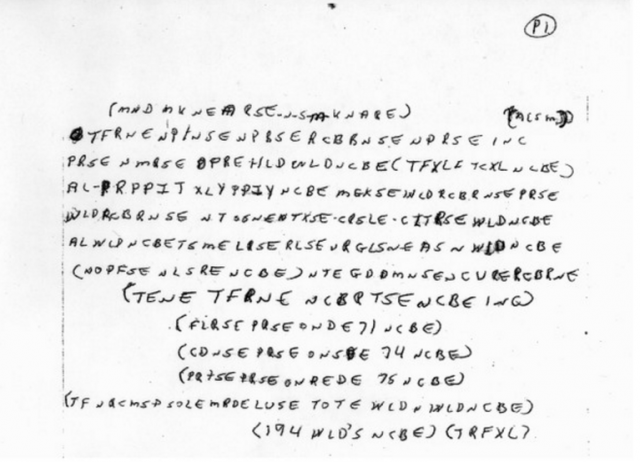 P1
(MND MKNEARSE-N-S-M-KNARE) (ACSM)
TFRNENPTNSENPBSERCBBNSENPRSEINC
PRSENMRSEOPREHLDWLDNCBE(TFXLFTCXLNCBE)
AL-PRPPITXLYPPIYNCBEMGKSEWCDRCBRNSEPRSE
WLDRCBRNSENTSGNENTXSE-CRSLE-CITRSEWLDNCBE
ALWLDNCBETSMELRSERLSEURGLSNEASNWLDNCBE
(NOPFSENLSRENCBE)NTEGDDMNSENCURERCBRNE
(TENE TFRNE NCBRTSENCBEING)
(FLRSEPRSEONDE71NCBE)
(CDNSEPRSEONSDE74NCBE)
(PRTSEPRSEONREDE75NCBE)
(TFNRCMSPSOLEMRDELUSETOTEWLDNWLDNCBE)
(194WLD'SNCBE)(TRFXL)